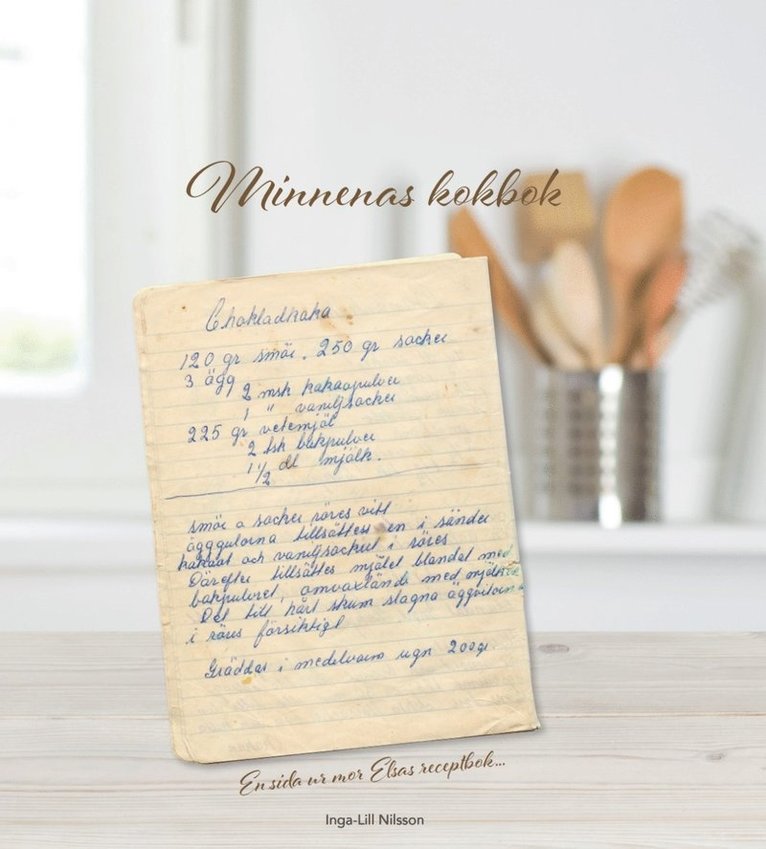 Minnenas kokbok
Chokladkaka
120 gr smör. 250 gr socker
3 ägg
2 msk kakaopulver
1 " vaniljsocker
225 gr vetemjöl
2 tsk bakpulver
1 1/2 dl mjölk.
smör o socker röres vitt
ägggulorna tillsättes en i sänder
kakaot och vaniljsockret i röres
Därefter tillsättes mjölet blandat med
bakpulvret, omväxlande med mjölken
Det till hårt skum slagna äggvitorna
i röres försiktigt
Gräddas i medelvarm ugn 200gr.
En sida ur mor Elsas receptbok...
Inga-Lill Nilsson